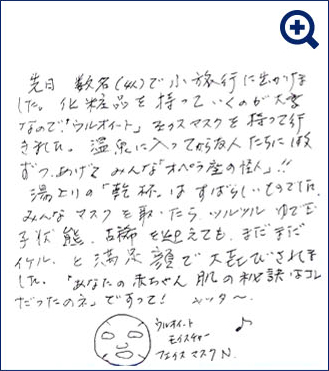 先日 数名(4人)で小旅行に出かけま
した。化粧品を持っていくのが大変
なので、「ウルオイート」モイスマスクを持って行
きました。温泉に入ってから友人たちに1枚
ずつあげて みんな「オペラ座の怪人」!!
湯上りの「乾杯」は すばらしいものでした。
みんな マスクを取ったら、ツルツル ゆでた
子状態、古稀を迎えても、まだまだ
イケル、と満足顔で 大喜びされま
した。「あなたの赤ちゃん肌の秘訣はコレ
だったのネ」ですって! ヤッター
ウルオイート
モイスチャー
フェイスマスクN.